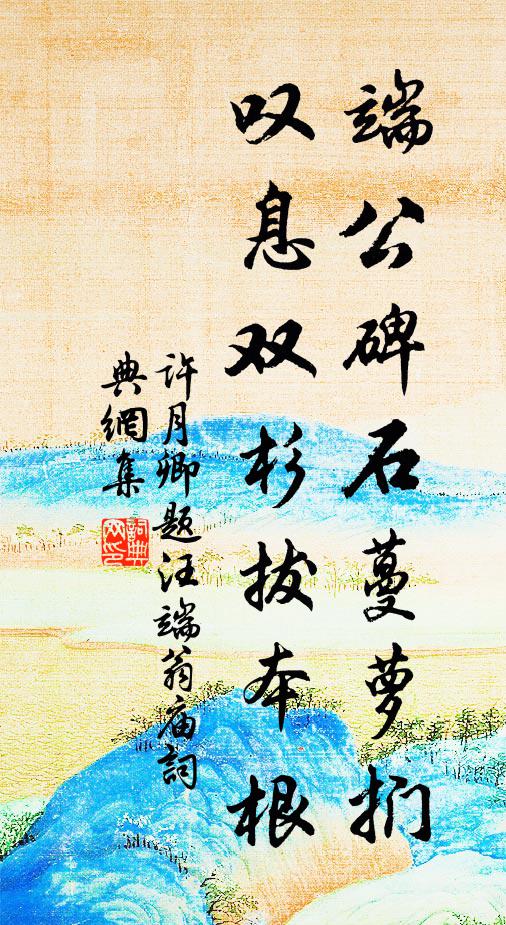 端公碑石蔓萝扪
叹息双杉拔本根
许月卿题汪端翁庙词
典網集
詞典
网印